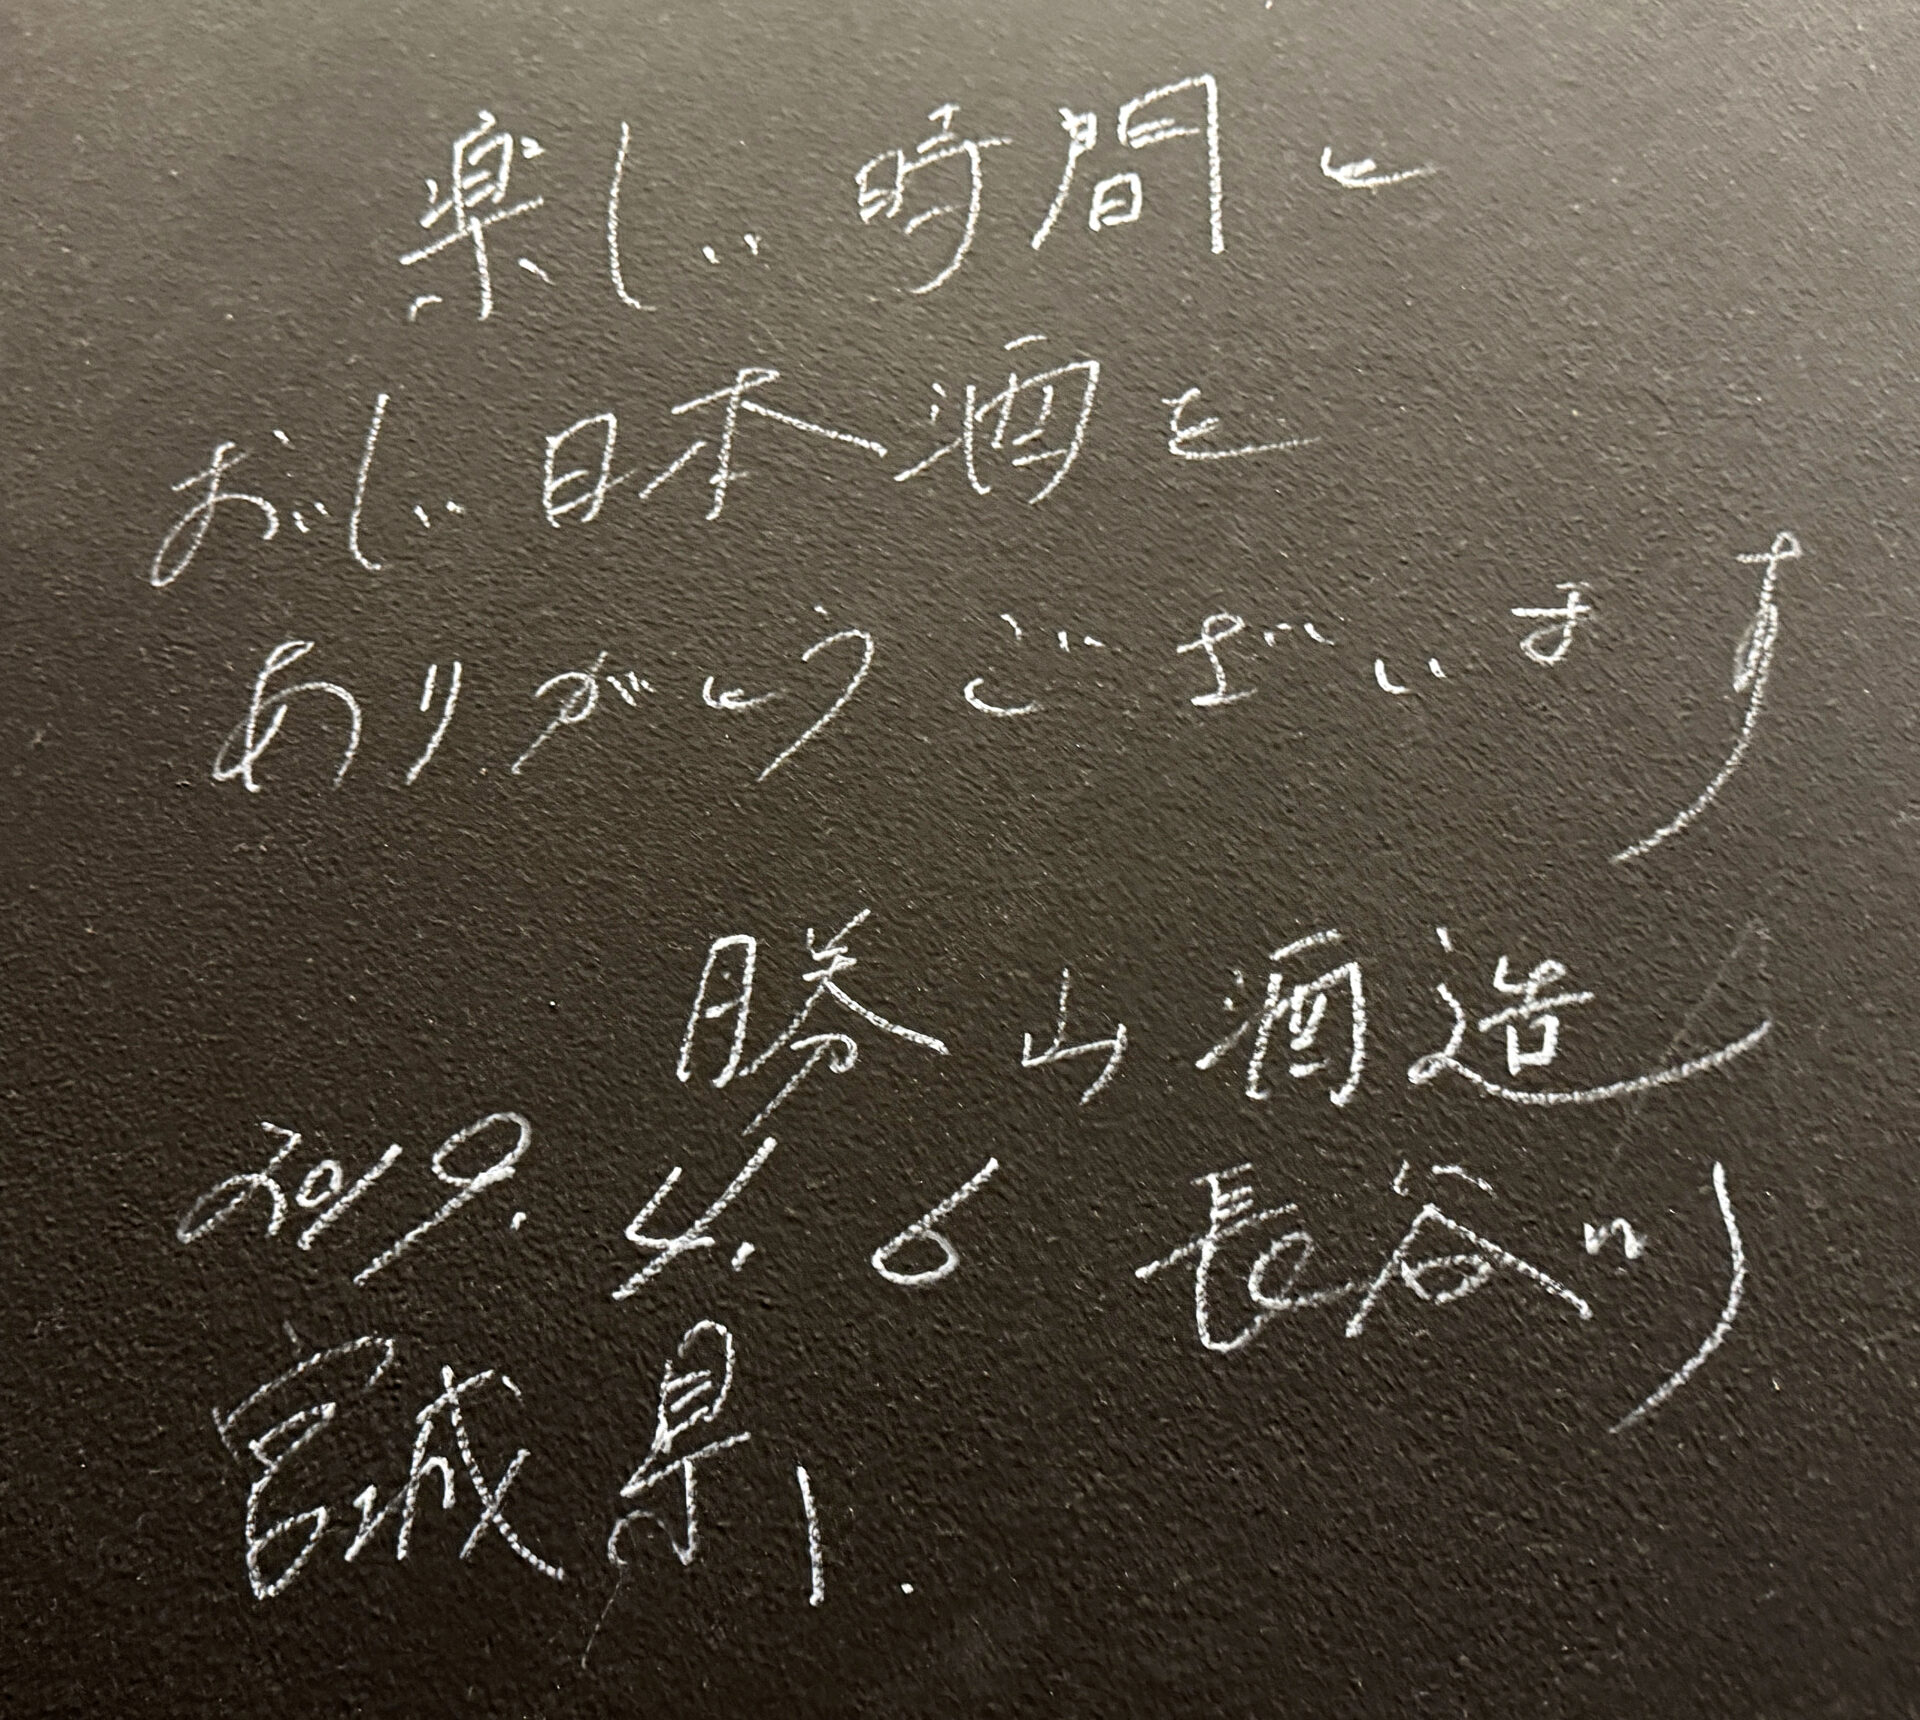 楽しい時間と
おいしい日本酒を
ありがとうございます
勝山酒造
2019.4.6 長谷川
宮城県